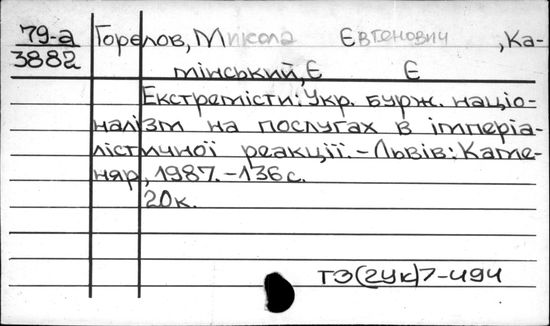 79-а Горелов, Микола Євгенович, Ка-
3882 мінський, Є Є
Екстремісти: Укр. бурж. націо-
налізм на послугах в імперіа-
лістичної реакції. - Львів: Каме-
няр, 1987. - 136 с.
20к.
ТЭ(2УК)7-494